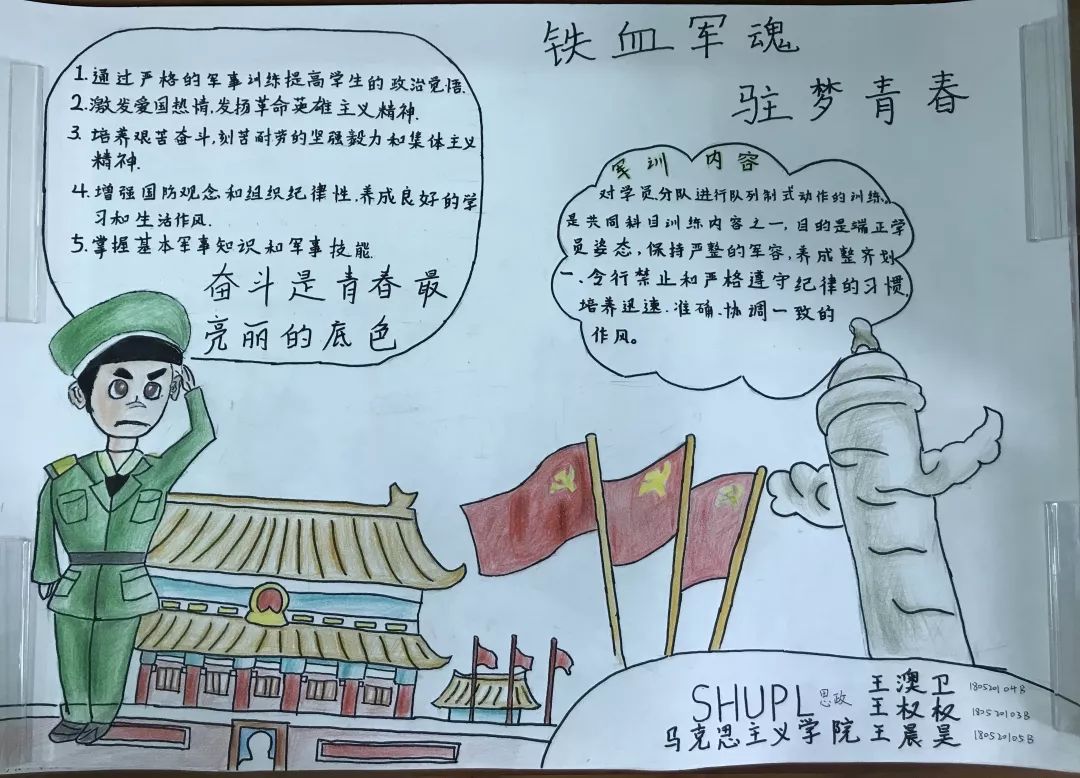 铁血军魂
驻梦青春
1.通过严格的军事训练提高学生的政治觉悟.
2.激发爱国热情,发扬革命英雄主义精神.
3.培养艰苦奋斗,刻苦耐劳的坚强毅力和集体主义
精神.
4.增强国防观念和组织纪律性.养成良好的学
习和生活作风.
5.掌握基本军事知识和军事技能
奋斗是青春最
亮丽的底色
军训内容
对学员.分队进行队列制式动作的训练.
是共同科目训练内容之一,目的是端正学
员姿态,保持严整的军容,养成整齐划
一、令行禁止和严格遵守纪律的习惯.
培养迅速.准确.协调一致的
作风。
SHUPL 思政 王澳卫 180520104B
王权权 180520103B
马克思主义学院 王晨昊 180520105B